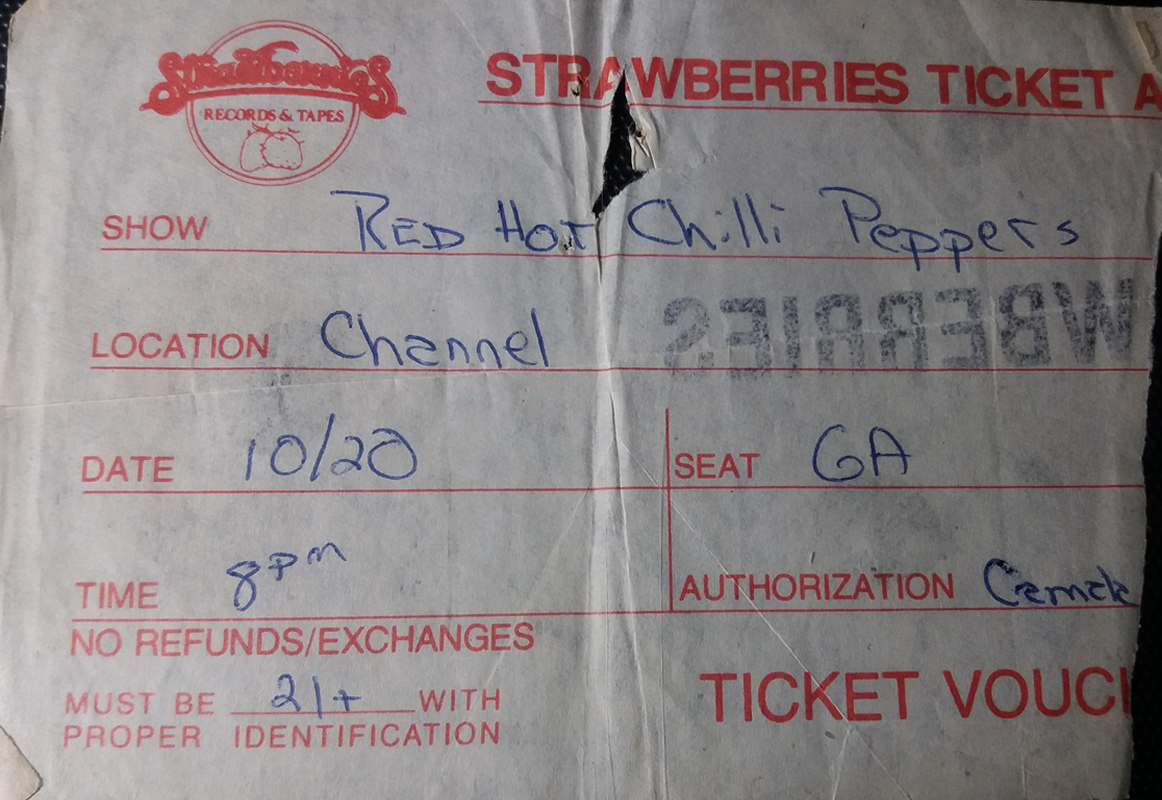 Strawberries
RECORDS & TAPES
STRAWBERRIES TICKET A
SHOW RED HOT Chilli Peppers
WBERRIES
LOCATION Channel
DATE 10/20 SEAT GA
TIME 8pm AUTHORIZATION
NO REFUNDS/EXCHANGES
MUST BE 21+ WITH
PROPER IDENTIFICATION
TICKET VOUC